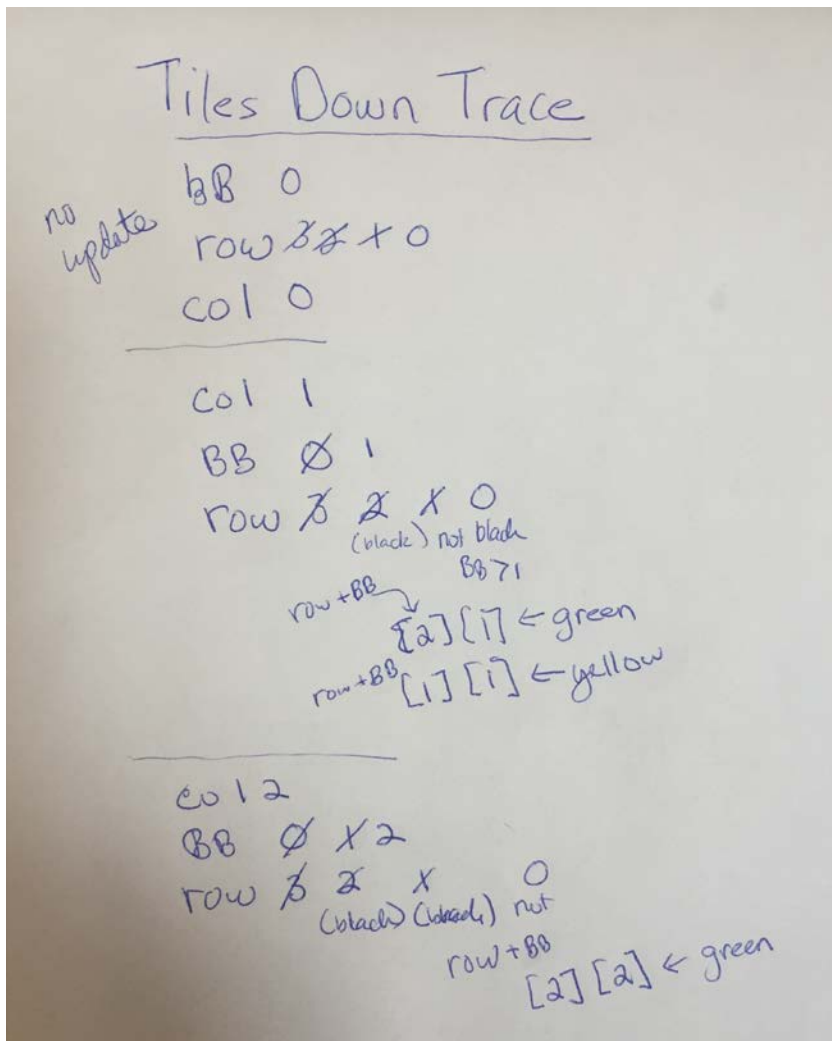 Tiles Down Trace
no
update
BB 0
row 3 2 1 0
col 0
col 1
BB 0 1
row 3 2 1 0
(black) not black
BB>1
row+BB
[2][1] ← green
row+BB [1][1] ← yellow
col 2
BB 0 1 2
row 3 2 1 0
(black) (black) not
row+BB
[2][2] ← green